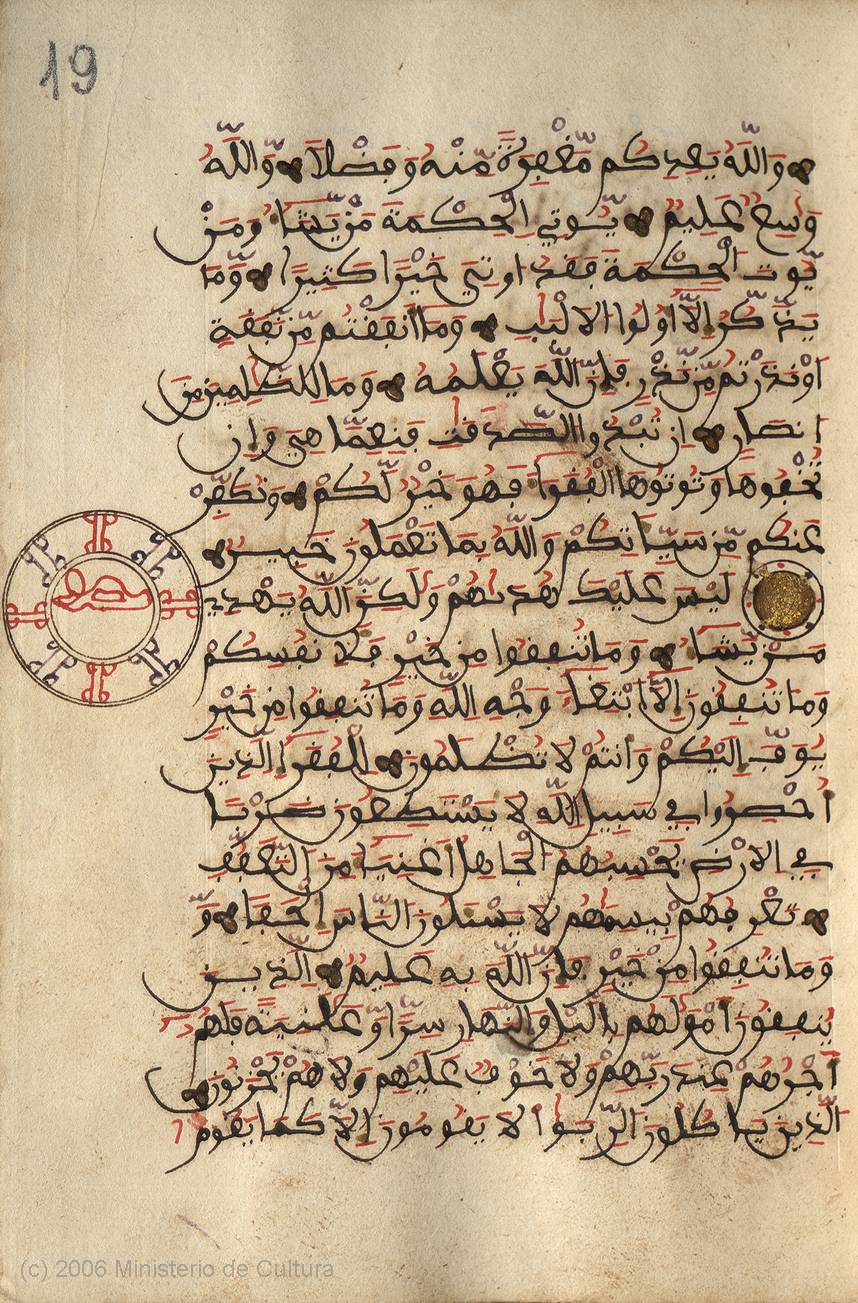 19
وَاللَّهُ يَعِدُكُم مَّغْفِرَةً مِّنْهُ وَفَضْلًا وَاللَّهُ
وَٰسِعٌ عَلِيمٌ يُوتِي الْحِكْمَةَ مَنْ يَّشَآءُ وَمَنْ
يُّوتَ الْحِكْمَةَ فَقَدُ اوتِيَ خَيْرًا كَثِيرًا وَمَا
يَذَّكَّرُ إِلَّآ أُوْلُوا الَالْبَٰبِ وَمَآ أَنفَقْتُم مِّن نَّفَقَةٍ
اَوْ نَذَرْتُم مِّن نَّذْرٍ فَإِنَّ اللَّهَ يَعْلَمُهُ وَمَا لِلظَّٰلِمِينَ مِنَ
اَنصَارٍ اِن تُبْدُوا الصَّدَقَٰتِ فَنِعِمَّا هِيَ وَإِن
تُخْفُوهَا وَتُوتُوهَا الْفُقَرَآءَ فَهُوَ خَيْرٌ لَّكُمْ وَنُكَفِّرْ
عَنكُم مِّن سَيِّـَٔاتِكُمْ وَاللَّهُ بِمَا تَعْمَلُونَ خَبِيرٌ
لَيْسَ عَلَيْكَ هُدَىٰهُمْ وَلَٰكِنَّ اللَّهَ يَهْدِي
مَنْ يَّشَآءُ وَمَا تُنفِقُوا مِنْ خَيْرٍ فَلِأَنفُسِكُمْ
وَمَا تُنفِقُونَ إِلَّا ابْتِغَآءَ وَجْهِ اللَّهِ وَمَا تُنفِقُوا مِنْ خَيْرٍ
يُوَفَّ إِلَيْكُمْ وَأَنتُمْ لَا تُظْلَمُونَ لِلْفُقَرَآءِ الَّذِينَ
أُحْصِرُوا فِي سَبِيلِ اللَّهِ لَا يَسْتَطِيعُونَ ضَرْبًا
فِي الَارْضِ يَحْسِبُهُمُ الْجَاهِلُ أَغْنِيَآءَ مِنَ التَّعَفُّفِ
تَعْرِفُهُم بِسِيمَٰهُمْ لَا يَسْـَٔلُونَ النَّاسَ إِلْحَافًا
وَمَا تُنفِقُوا مِنْ خَيْرٍ فَإِنَّ اللَّهَ بِهِ عَلِيمٌ الَّذِينَ
يُنفِقُونَ أَمْوَٰلَهُم بِاللَّيْلِ وَالنَّهَارِ سِرًّا وَعَلَٰنِيَةً فَلَهُمُ
أَجْرُهُمْ عِندَ رَبِّهِمْ وَلَا خَوْفٌ عَلَيْهِمْ وَلَا هُمْ يَحْزَنُونَ
الَّذِينَ يَاكُلُونَ الرِّبَوٰا لَا يَقُومُونَ إِلَّا كَمَا يَقُومُ
(c) 2006 Ministerio de Cultura